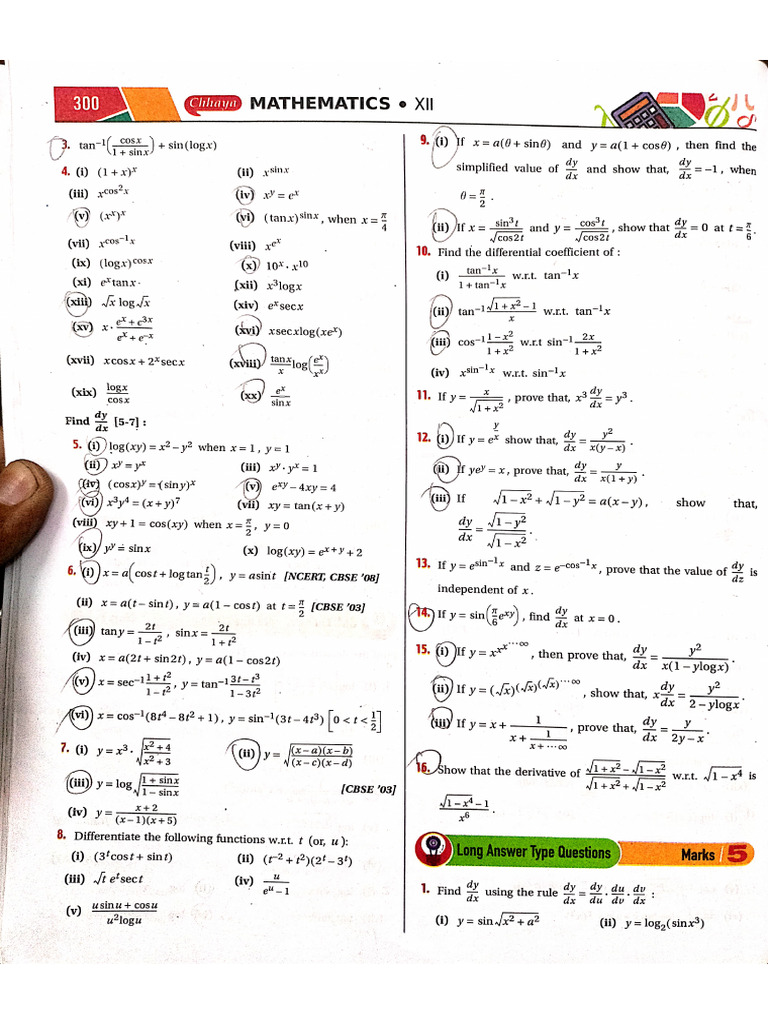 300 Chhaya MATHEMATICS • XII
3. tan⁻¹(cosx/(1 + sinx)) + sin(logx)
4. (i) (1 + x)ˣ (ii) x^(sinx)
(iii) x^(cos²x) (iv) x^y = e^x
(v) (x^x)^x (vi) (tanx)^(sinx), when x = π/4
(vii) x^(cos⁻¹x) (viii) x^(e^x)
(ix) (logx)^(cosx) (x) 10^x · x^10
(xi) e^x tanx · (xii) x³logx
(xiii) √x log√x (xiv) e^x secx
(xv) x · (e^x + e^(3x))/(e^x + e^(−x)) (xvi) xsecxlog(xe^x)
(xvii) xcosx + 2^x secx (xviii) (tanx/x) log(e^x/x^x)
(xix) logx/cosx (xx) e^x/sinx
Find dy/dx [5-7] :
5. (i) log(xy) = x² − y² when x = 1, y = 1
(ii) x^y = y^x (iii) x^y · y^x = 1
(iv) (cosx)^y = (siny)^x (v) e^(xy) − 4xy = 4
(vi) x³y⁴ = (x + y)⁷ (vii) xy = tan(x + y)
(viii) xy + 1 = cos(xy) when x = π/2, y = 0
(ix) y^y = sinx (x) log(xy) = e^(x + y) + 2
6. (i) x = a(cost + logtan t/2), y = asint [NCERT, CBSE '08]
(ii) x = a(t − sint), y = a(1 − cost) at t = π/2 [CBSE '03]
(iii) tany = 2t/(1 − t²), sinx = 2t/(1 + t²)
(iv) x = a(2t + sin2t), y = a(1 − cos2t)
(v) x = sec⁻¹ (1 + t²)/(1 − t²), y = tan⁻¹ (3t − t³)/(1 − 3t²)
(vi) x = cos⁻¹(8t⁴ − 8t² + 1), y = sin⁻¹(3t − 4t³) [0 < t < 1/2]
7. (i) y = x³ · √((x² + 4)/(x² + 3)) (ii) y = √((x − a)(x − b)/(x − c)(x − d))
(iii) y = log√((1 + sinx)/(1 − sinx)) [CBSE '03]
(iv) y = (x + 2)/((x − 1)(x + 5))
8. Differentiate the following functions w.r.t. t (or, u):
(i) (3^t cost + sint) (ii) (t⁻² + t²)(2^t − 3^t)
(iii) √t e^t sect (iv) u/(e^u − 1)
(v) (usinu + cosu)/(u²logu)
9. (i) If x = a(θ + sinθ) and y = a(1 + cosθ), then find the
simplified value of dy/dx and show that, dy/dx = −1, when
θ = π/2.
(ii) If x = sin³t/√cos2t and y = cos³t/√cos2t, show that dy/dx = 0 at t = π/6.
10. Find the differential coefficient of :
(i) tan⁻¹x/(1 + tan⁻¹x) w.r.t. tan⁻¹x
(ii) tan⁻¹ (√(1 + x²) − 1)/x w.r.t. tan⁻¹x
(iii) cos⁻¹ (1 − x²)/(1 + x²) w.r.t sin⁻¹ 2x/(1 + x²)
(iv) x^(sin⁻¹x) w.r.t. sin⁻¹x
11. If y = x/√(1 + x²), prove that, x³ dy/dx = y³.
12. (i) If y = e^(y/x) show that, dy/dx = y²/(x(y − x)).
(ii) If ye^y = x, prove that, dy/dx = y/(x(1 + y)).
(iii) If √(1 − x²) + √(1 − y²) = a(x − y), show that,
dy/dx = √(1 − y²)/√(1 − x²).
13. If y = e^(sin⁻¹x) and z = e^(−cos⁻¹x), prove that the value of dy/dz is
independent of x.
14. If y = sin(π/6 e^(xy)), find dy/dx at x = 0.
15. (i) If y = x^(x^(x^(···∞))), then prove that, dy/dx = y²/(x(1 − ylogx)).
(ii) If y = (√x)^((√x)^((√x)^(···∞))), show that, x dy/dx = y²/(2 − ylogx).
(iii) If y = x + 1/(x + 1/(x + ···∞)), prove that, dy/dx = y/(2y − x).
16. Show that the derivative of (√(1 + x²) − √(1 − x²))/(√(1 + x²) + √(1 − x²)) w.r.t. √(1 − x⁴) is
(√(1 − x⁴) − 1)/x⁶.
Long Answer Type Questions Marks 5
1. Find dy/dx using the rule dy/dx = dy/du · du/dv · dv/dx :
(i) y = sin√(x² + a²) (ii) y = log₂(sinx³)